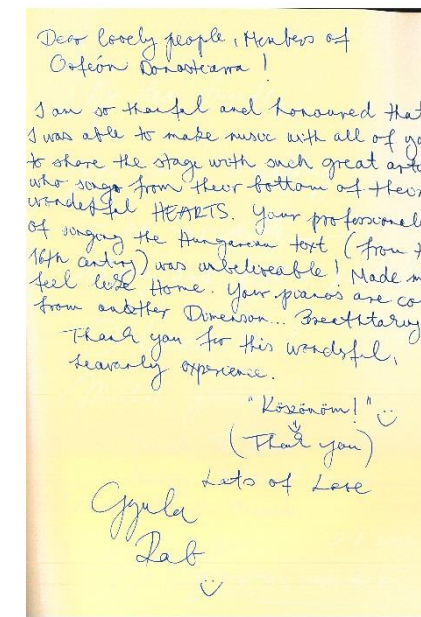 Dear lovely people, Members of
Orfeón Donostiarra!
I am so thankful and honoured that
I was able to make music with all of yo
to share the stage with such great arti
who sings from their bottom of their
wonderful HEARTS. Your professional
of singing the Hungarian text (from t
16th century) was unbelieveable! Made m
feel like Home. Your pianos are co
from another Dimension... Breathtaking
Thank you for this wonderful,
heavenly experience.
"Köszönöm!"
(Thank you)
Lots of Love
Gyula
Rab